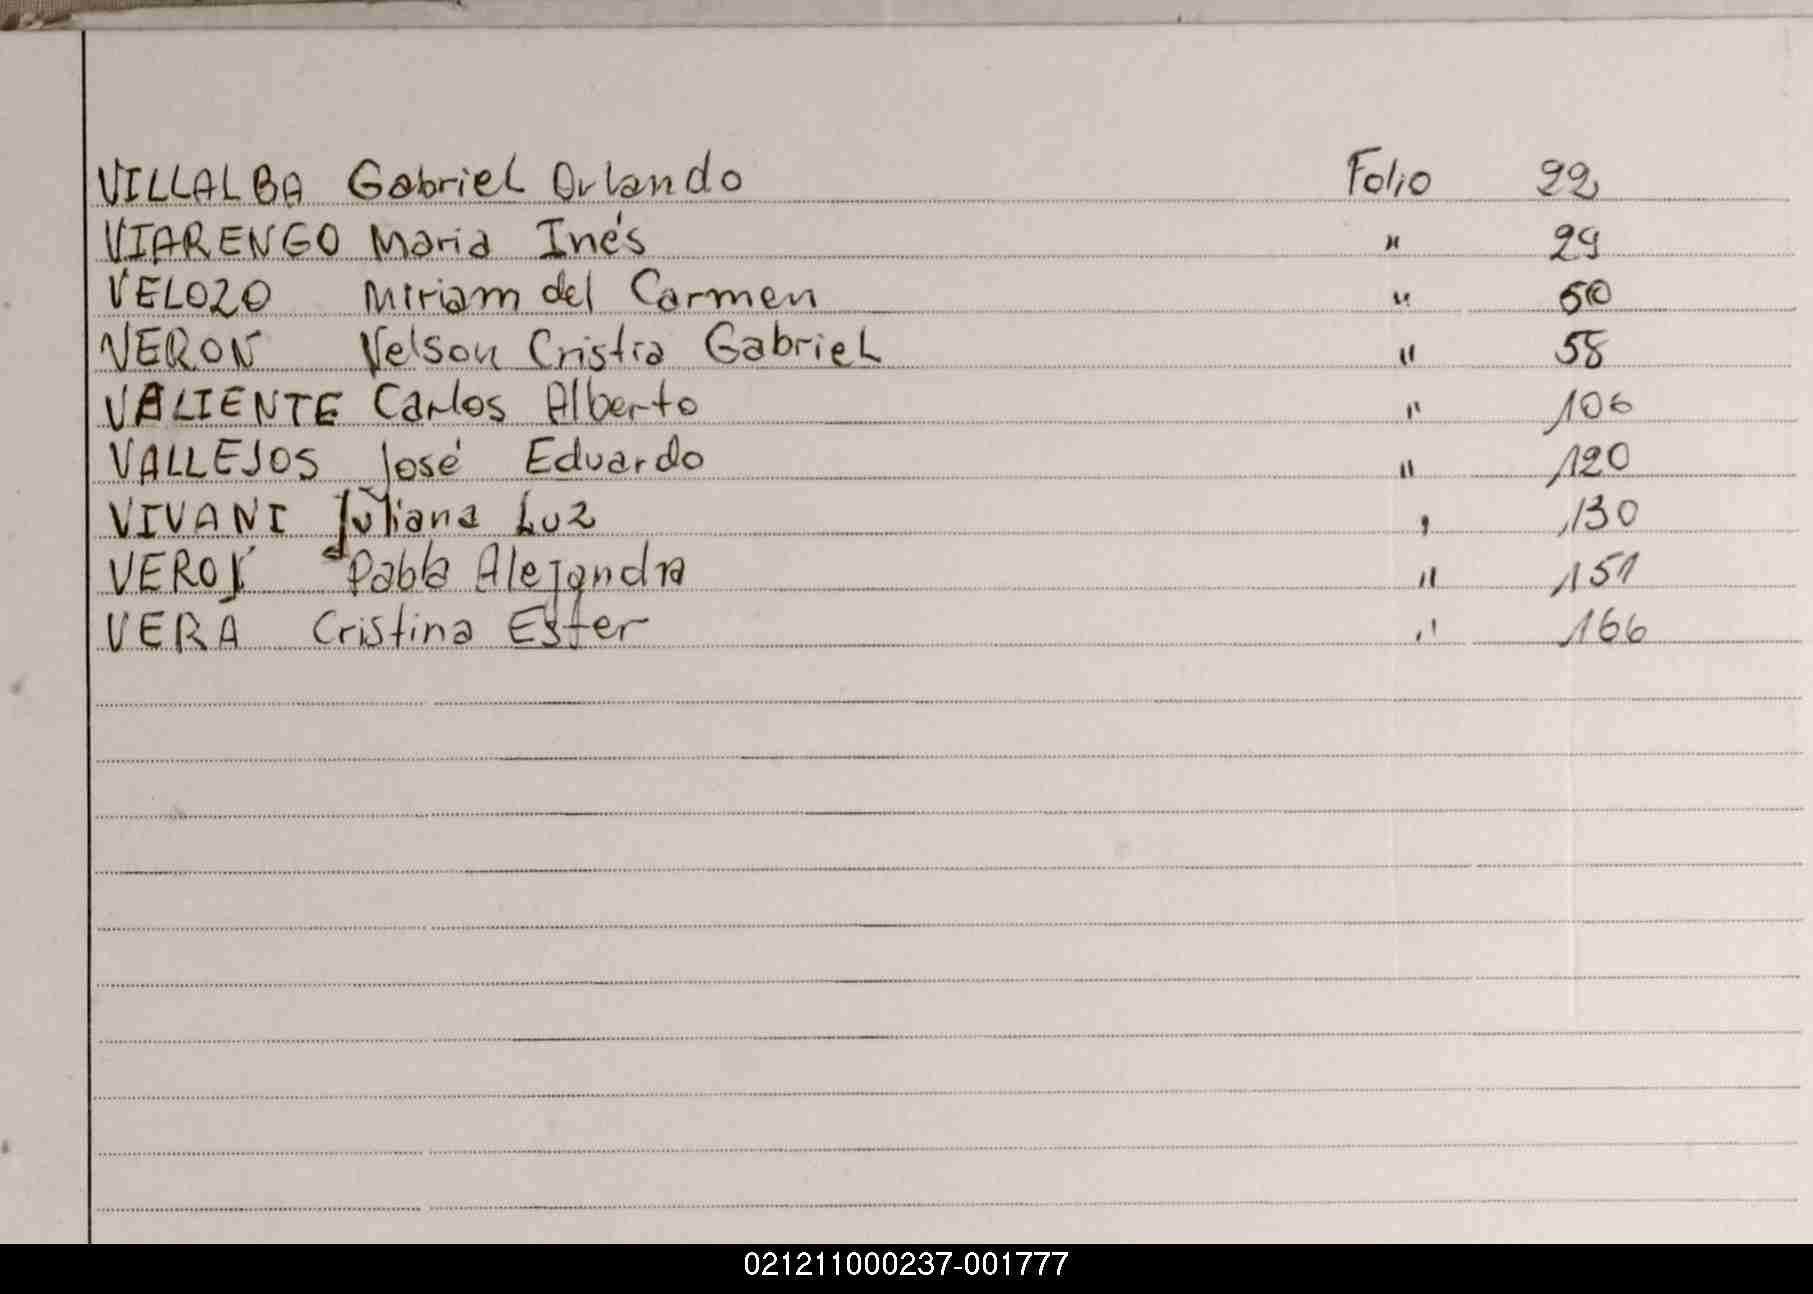 VILLALBA Gabriel Orlando Folio 22
VIARENGO Maria Inés " 29
VELOZO Miriam del Carmen " 50
VERON Nelson Cristia Gabriel " 58
VALIENTE Carlos Alberto " 106
VALLEJOS José Eduardo " 120
VIVANI Juliana Luz , 130
Pabla Alejandra " 151
VERA Cristina Ester " 166
021211000237-001777